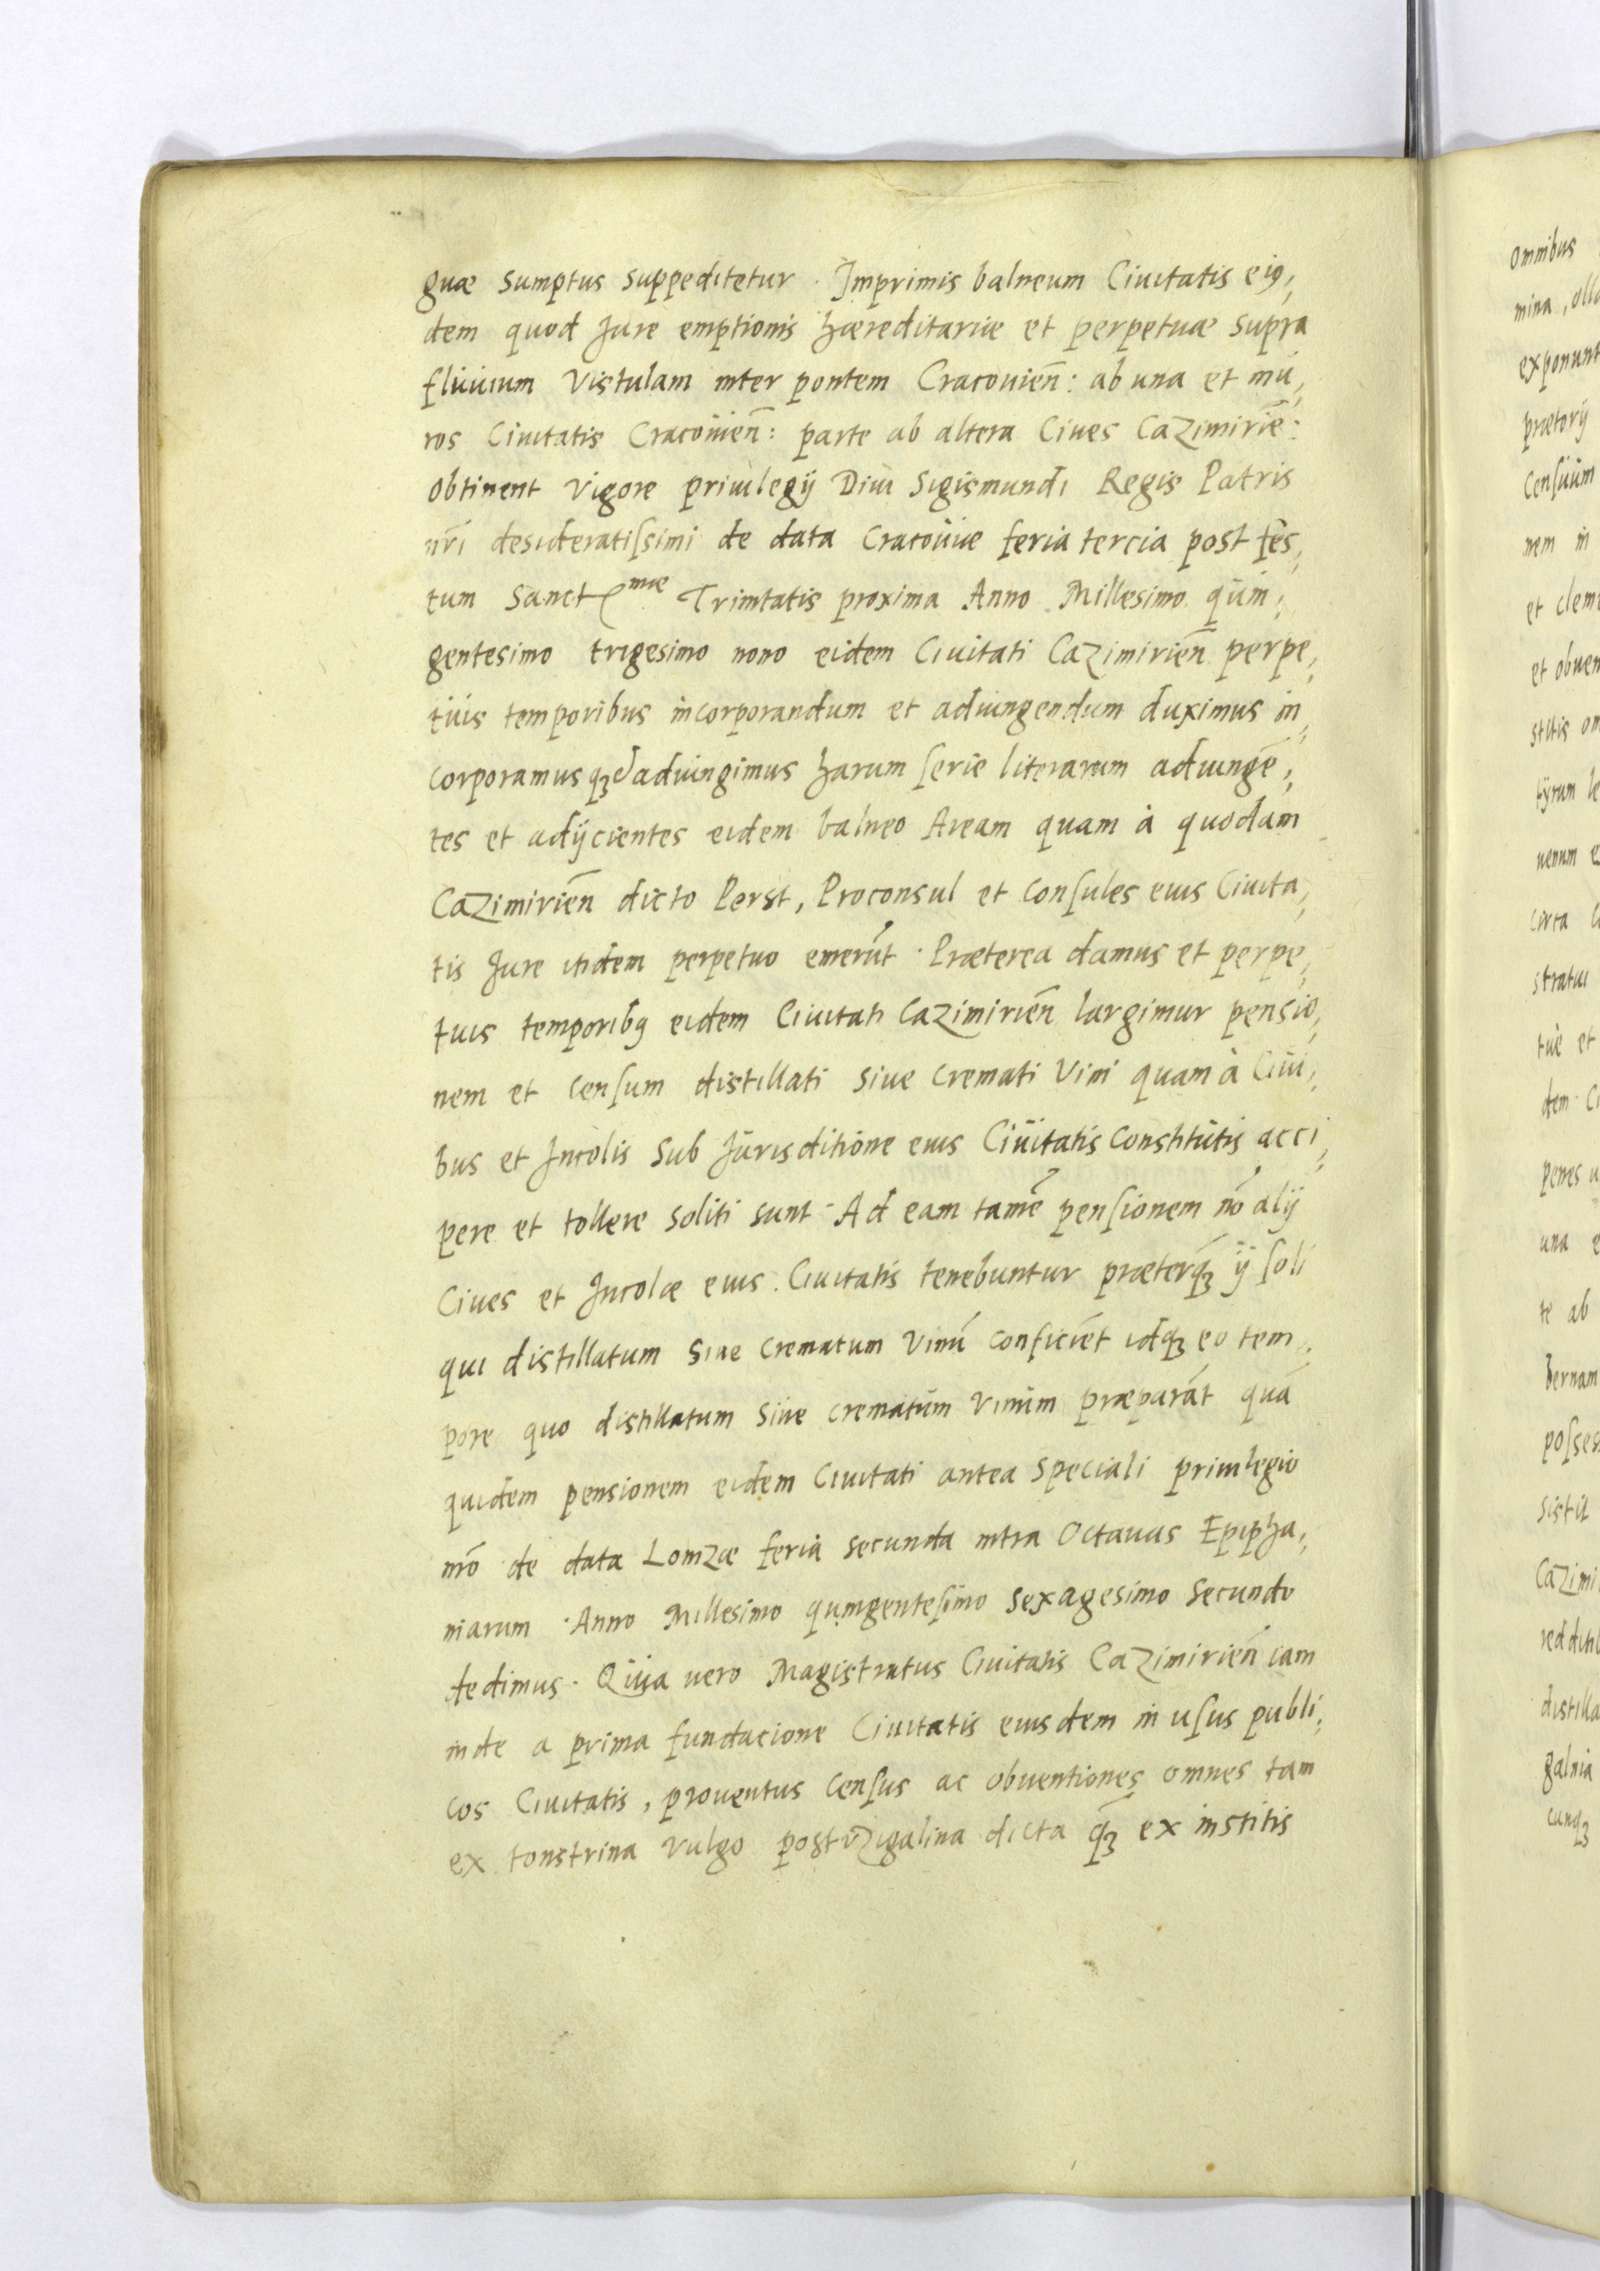 guæ sumptus suppeditetur. Imprimis balneum Ciuitatis eiꝯ,
dem quod Iure emptionis hæreditariæ et perpetuæ supra
fluuium Vistulam inter pontem Cracouień: ab una et mu,
ros Ciuitatis Cracouień: parte ab altera Ciues Cazimirië:
obtinent Vigore priuilegij Diui Sigismundi Regis Patris
nr̃i desideratiſsimi de data Cracouiæ feria tercia post fes,
tum Sanctmæ Trinitatis proxima Anno Millesimo quin,
gentesimo trigesimo nono eidem Ciuitati Cazimirień perpe,
tuis temporibus incorporandum et adiungendum duximus in,
corporamusqꝫ adiungimus harum ſerie literarum adiungē,
tes et adijcientes eidem balneo Aream quam à quodam
Cazimirień dicto Perst, Proconsul et Conſules eius Ciuita,
tis Iure itidem perpetuo emerūt. Præterea damus et perpe,
tuis temporibꝯ eidem Ciuitati Cazimirień largimur pensio,
nem et Cenſum distillati siue Cremati Vini quam à Ciui,
bus et Incolis sub Jurisditione eius Ciuitatis Constitutis acci,
pere et tollere soliti sunt. Ad eam tamē penſionem nō alij
Ciues et Incolæ eius Ciuitatis tenebuntur præterqꝫ ij ſoli
qui distillatum siue Crematum Vinū conficiēt idqꝫ eo tem,
pore quo distillatum siue crematum Vinum præparāt quā
quidem pensionem eidem Ciuitati antea speciali priuilegio
nr̃o de data Lomzæ feria secunda intra Octauas Epipha,
niarum Anno Millesimo quingenteſimo sexagesimo secundo
dedimus. Quia vero Magistratus Ciuitatis Cazimirień iam
inde a prima fundacione Ciuitatis eiusdem in uſus publi,
cos Ciuitatis, prouentus Cenſus ac obuentiones omnes tam
ex tonstrina vulgo postrzigalnia dicta qꝫ ex institis